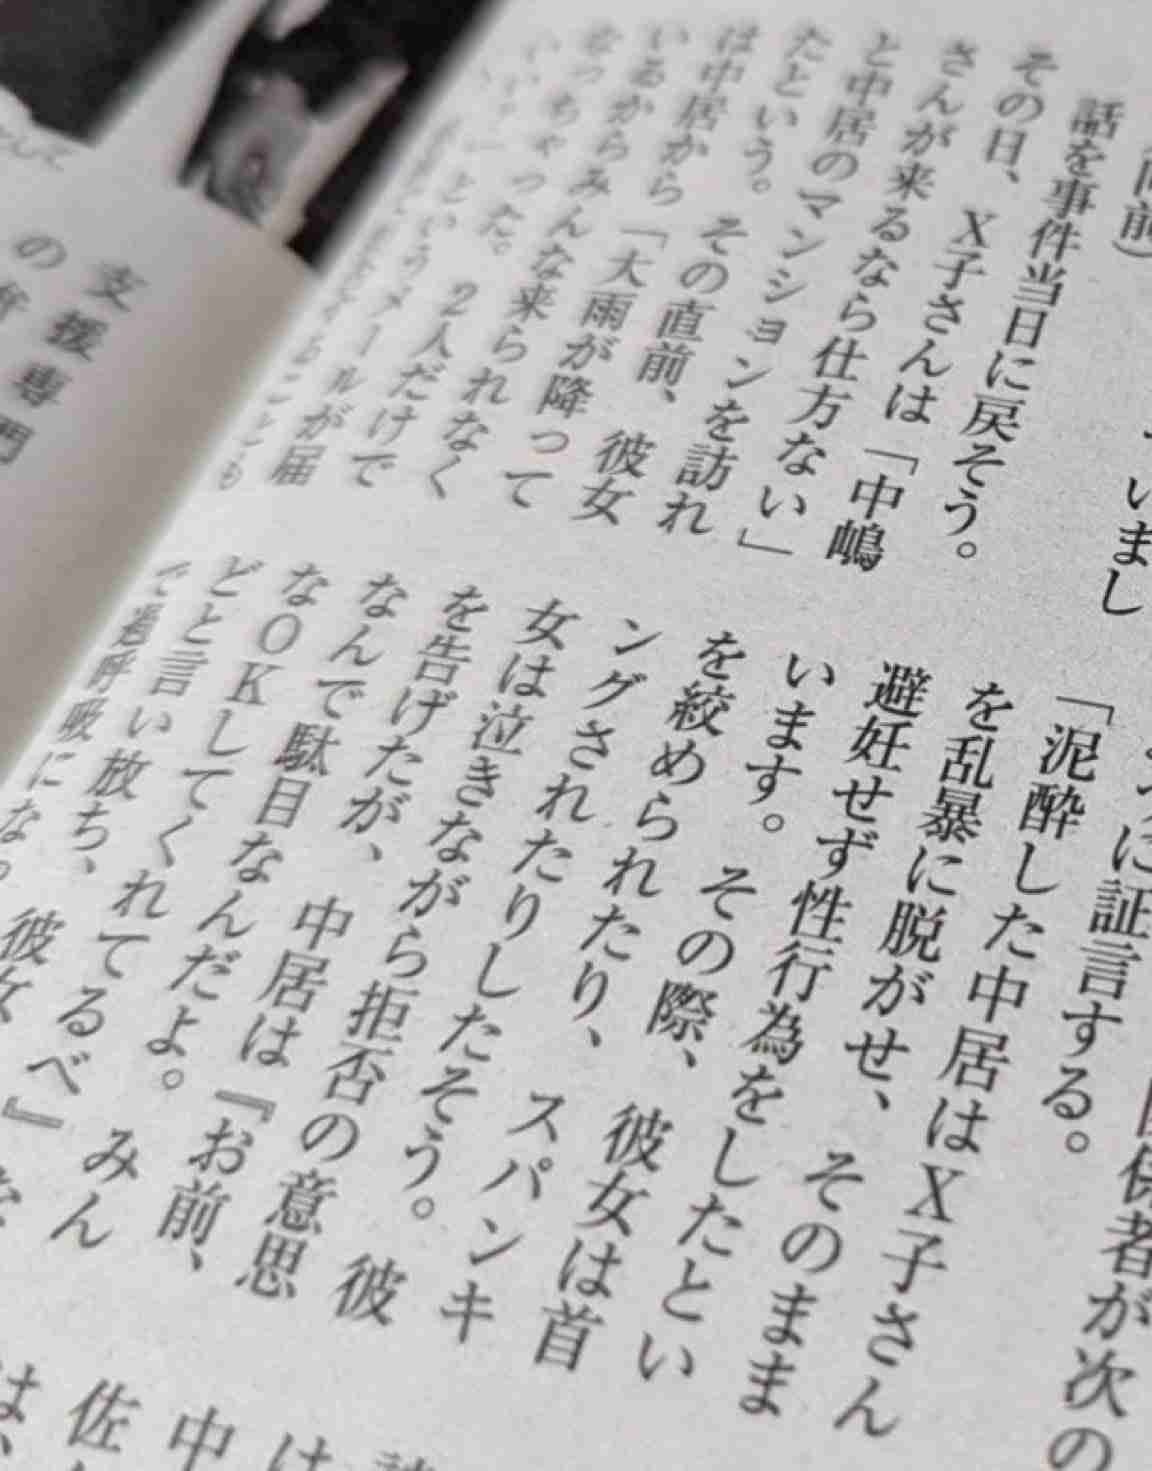 (同前)
話を事件当日に戻そう。
その日、X子さんは「中嶋
さんが来るなら仕方ない」
と中居のマンションを訪れ
たという。その直前、彼女
は中居から「大雨が降って
いるからみんな来られなく
なっちゃった。2人だけで
いい?」というメールが届
こども
いまし
係者が次の
ように証言する。
「泥酔した中居はX子さん
を乱暴に脱がせ、そのまま
避妊せず性行為をしたとい
います。その際、彼女は首
を絞められたり、スパンキ
ングされたりしたそう。彼
女は泣きながら拒否の意思
を告げたが、中居は『お前、
なんで駄目なんだよ。みん
なOKしてくれてるべ』
どと言い放ち、彼女
で過呼吸にな
支援専門
の
は
中
佐
は、